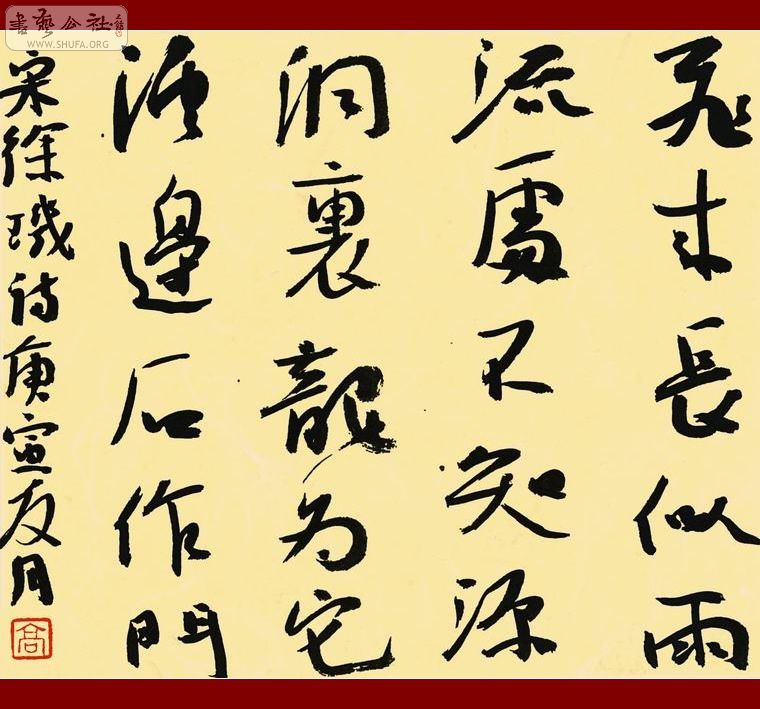 書藝公社
WWW.SHUFA.ORG
飛来長似雨
流處不知源
洞裏龍為宅
邊石作門
宋徐璣詩庚寅月
高